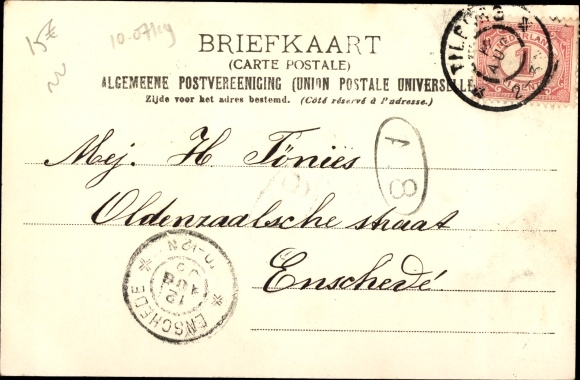 15€
BRIEFKAART
(CARTE POSTALE)
ALGEMEENE POSTVEREENIGING (UNION POSTALE UNIVERSELLE
Zijde voor het adres bestemd. (Côté réservé à l'adresse.)
TILBURG
NEDERLAND
1
Mej. H Tönies
1 8
Oldenzaalsche straat
Enschedé
ENSCHEDE
12
AUG